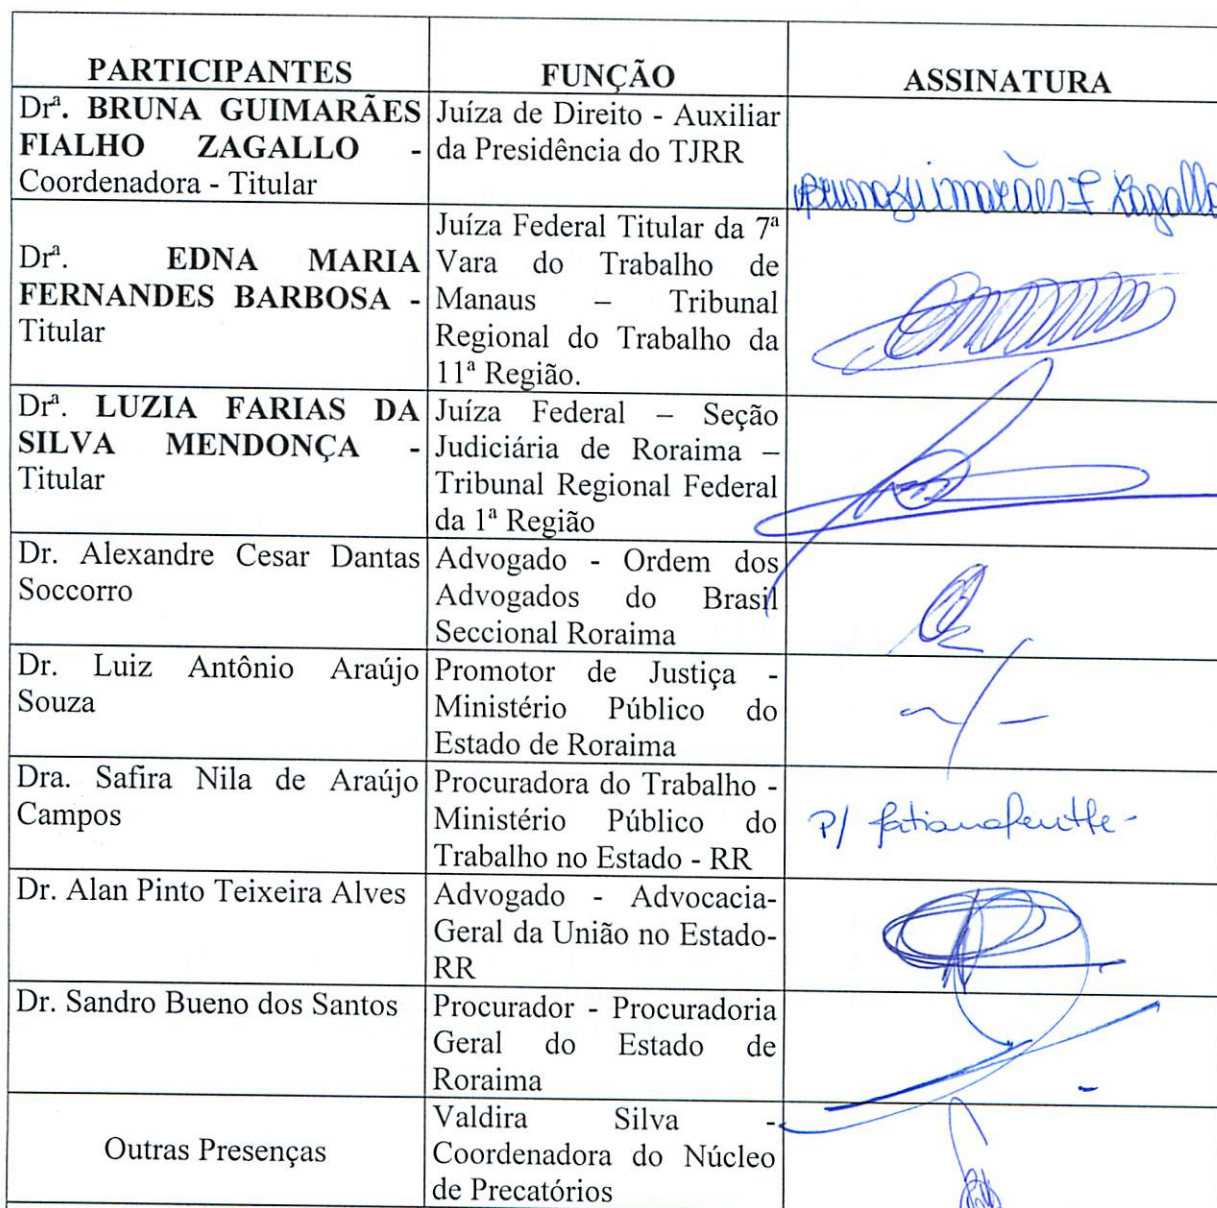 PARTICIPANTES
FUNÇÃO
ASSINATURA
Drª. BRUNA GUIMARÃES
FIALHO ZAGALLO -
Coordenadora - Titular
Juíza de Direito - Auxiliar
da Presidência do TJRR
Bruna Guimarães F Zagallo
Drª. EDNA MARIA
FERNANDES BARBOSA -
Titular
Juíza Federal Titular da 7ª
Vara do Trabalho de
Manaus – Tribunal
Regional do Trabalho da
11ª Região.
Drª. LUZIA FARIAS DA
SILVA MENDONÇA -
Titular
Juíza Federal – Seção
Judiciária de Roraima –
Tribunal Regional Federal
da 1ª Região
Dr. Alexandre Cesar Dantas
Soccorro
Advogado - Ordem dos
Advogados do Brasil
Seccional Roraima
Dr. Luiz Antônio Araújo
Souza
Promotor de Justiça -
Ministério Público do
Estado de Roraima
Dra. Safira Nila de Araújo
Campos
Procuradora do Trabalho -
Ministério Público do
Trabalho no Estado - RR
P/
Dr. Alan Pinto Teixeira Alves
Advogado - Advocacia-
Geral da União no Estado-
RR
Dr. Sandro Bueno dos Santos
Procurador - Procuradoria
Geral do Estado de
Roraima
Outras Presenças
Valdira Silva -
Coordenadora do Núcleo
de Precatórios